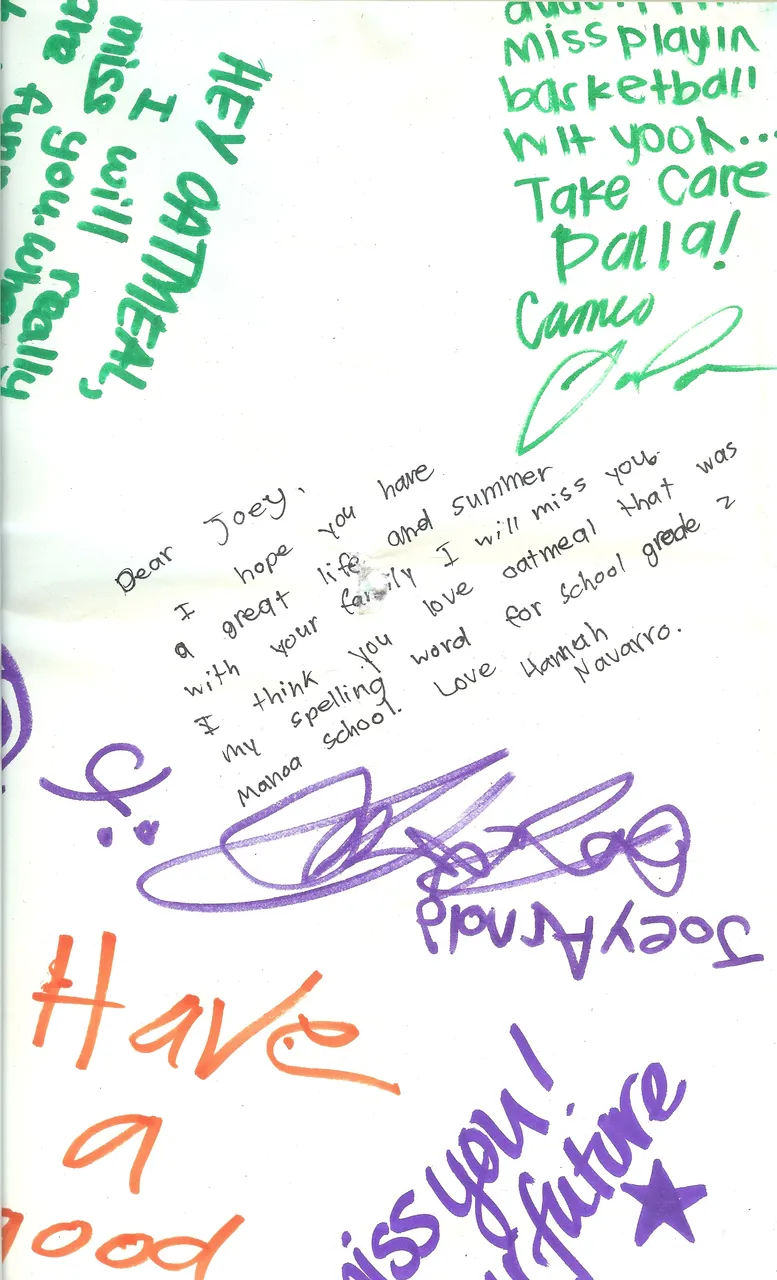 HEY OATMEAL,
I will really
miss you. whe
are fun
miss playin
basketball
wit yooh...
Take care
balla!
Cameo
Dear Joey,
I hope you have
a great life and summer
with your family I will miss you.
I think you love oatmeal that was
my spelling word for school grade 2
Manoa school. Love Hannah
Navarro.
Joey Arnold
Have
a
good
miss you!
future